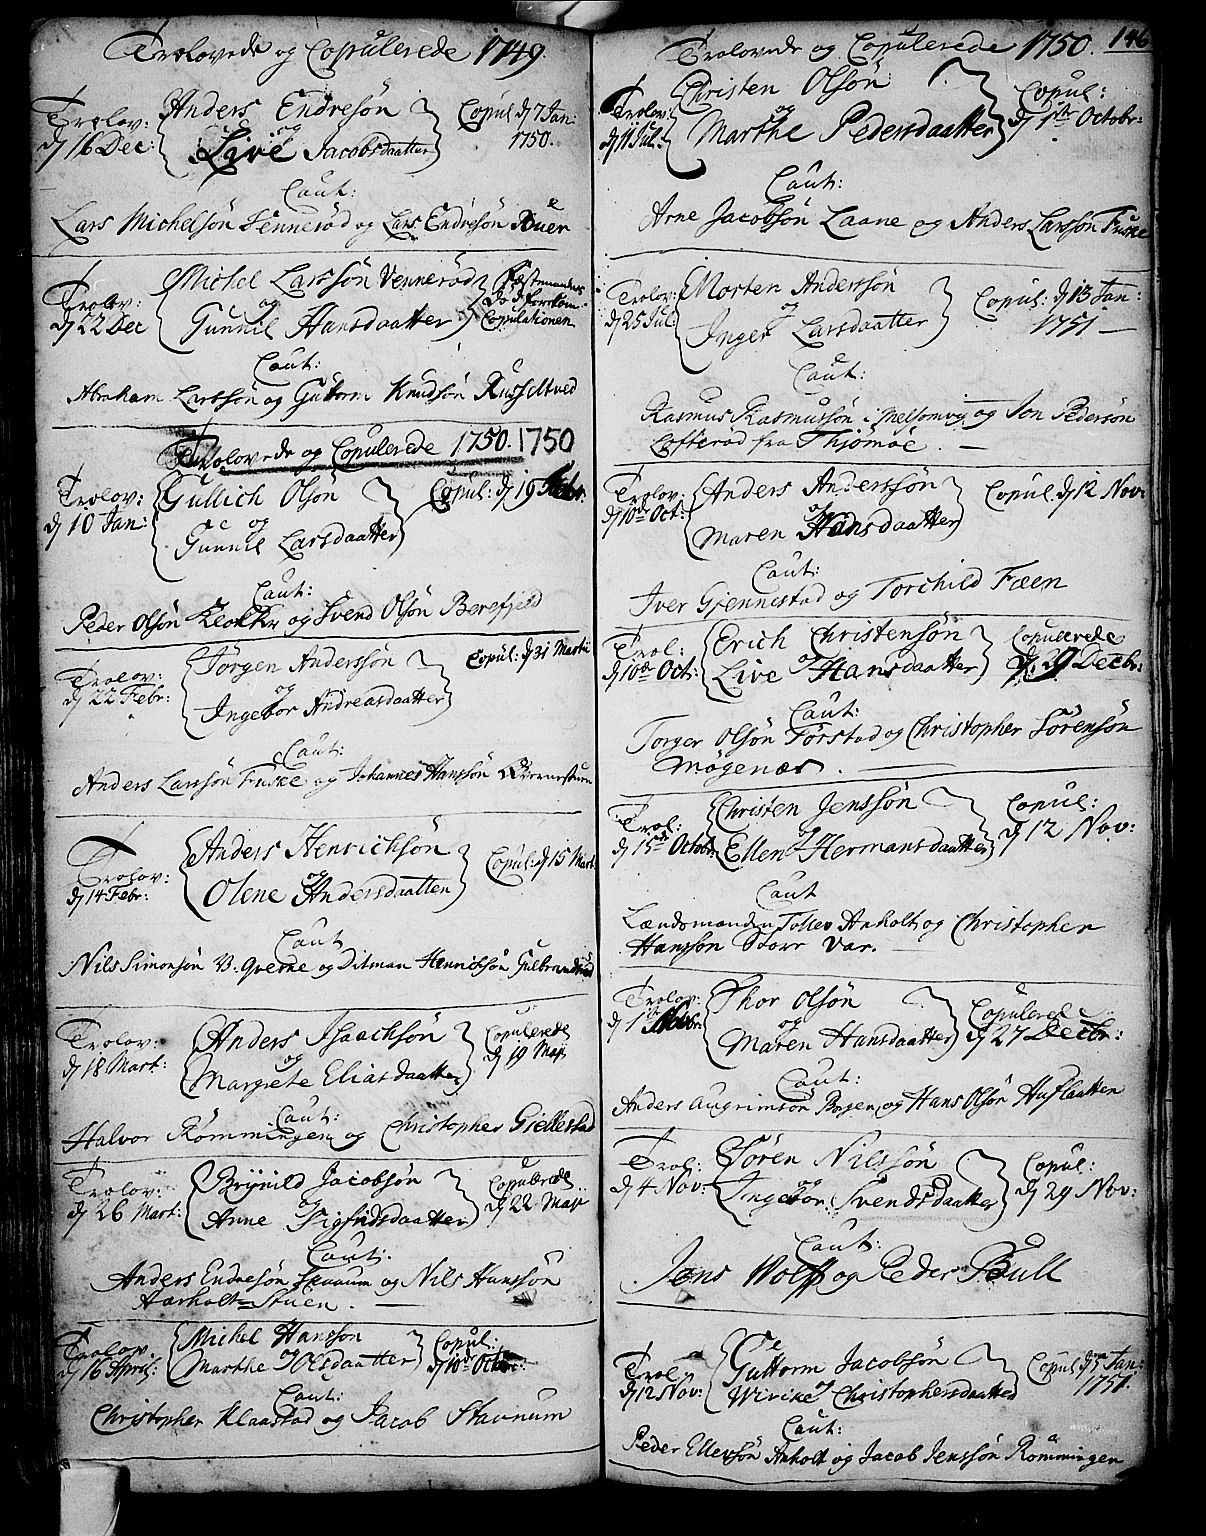 Trolovede og Copulerede 1749.
Trolov: d 16 Dec:
Anders Endresön og Live Jacobsdaatter
Copul d 7 Jan: 1750.
Caut:
Lars Michelsön Vennerød og Lars Endresön Auer
Trolov: d 22 Dec
Michel Larssön Vennerød og Gunnil Hansdaatter
Festemanden Copulationen
Caut:
Abraham Larssön og Gutorm Knudsön Russeltved
Trolovede og Copulerede 1750. 1750
Trolov: d 10 Jan:
Gullich Olsön og Gunnil Larsdaatter
Copul: d 19 Febr:
Caut:
Peder Olsön Klokker og Svend Olsön Berefjeld
Trolov: d 22 Febr:
Jörgen Anderssön og Ingebor Andreasdaatter
Copul: d 31 Martii
Caut:
Anders Larssön Fuske og Johannes Hanssön
Trolov: d 14 Febr:
Anders Henrichsön og Olene Andersdaatter
Copul: d 15 Mart:
Caut
Nils Simonsön V. Qverne og Ditman Henrichsön Gulbrandsrød
Trolov: d 18 Mart:
Anders Isaachsön og Margrete Eliasdaatter
Copulerede d 19 Maij
Caut:
Halvor Römmingen og Christopher Giellestad
Trolov: d 26 Mart:
Brynild Jacobsön og Anne Sigfridsdaatter
Copulerede d 22 Maij
Caut.
Anders Endresön Skaaum og Nils Hanssön
Aarholt=Stuen.
Trolov. d 16 April:
Michel Hanssön og Marthe Olsdaatter
Copul: d 10de Octbr:
Caut:
Christopher Klaastad og Jacob Stavnum
Trolovede og Copulerede 1750. 146
Trolov. d 11 Jul:
Christen Olsön og Marthe Pedersdaatter
Copul: d 1ste Octobr:
Caut:
Arne Jacobsön Laane og Anders Larssön Fuske
Trolov: d 25 Jul:
Morten Anderssön og Inger Larsdaatter
Copul: d 13 Jan: 1751
Caut:
Rasmus Rasmussön i Melsomvig og Jon Pedersön
Lofterød fra Thjömöe
Trolov: d 10de Oct:
Anders Anderssön og Maren Hansdaatter
Copul. d 12 Nov:
Caut:
Iver Gjennestad og Torchild Fæen
Trol: d 10de Oct:
Erich Christensön og Live Hansdaatter
Copulerede d. 29 Decbr:
Caut:
Torger Olsön Törstad og Christopher Sörensön
Mögenæs.
Trol: d 15de Octobr:
Christen Jenssön og Ellen Hermansdaatter
Copul: d 12 Nov:
Caut
Lændsmanden Tollev Anholt og Christopher
Hanssön Storr Var.
Trolov: d 1ste Novbr:
Thor Olsön og Maren Hansdaatter
Copulered d 27 Decbr:
Caut:
Anders Augrimsön Borgen og Hans Olsön Huflaatten
Trol: d 4 Nov:
Sören Nilssön og Ingebor Svendsdaatter
Copul: d 29 Nov:
Caut:
Jens Wolff og Peder Bull
Trol d 12 Nov:
Guttorm Jacobsön og Wiviche Christophersdaatter
Copul d 7 Jan: 1751.
Caut:
Peder Ellevsön Anholt og Jacob Jenssön Römmingen